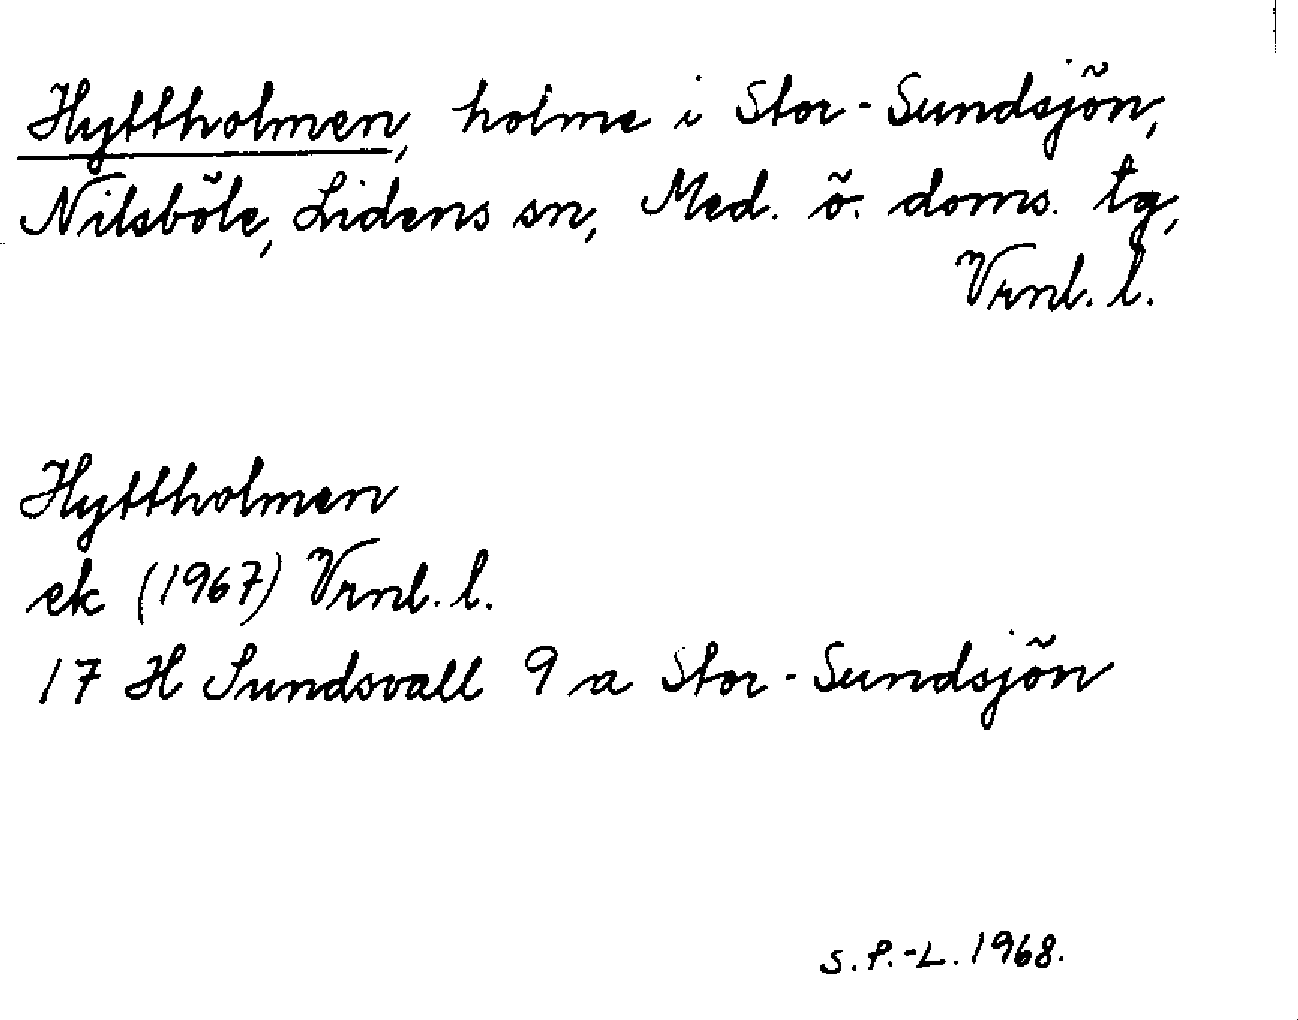 Hyttholmen, holme i Stor-Sundsjön,
Nilsböle, Lidens sn, Med. ö. doms. tg,
Vrnl. l.
Hyttholmen
ek (1967) Vrnl. l.
17 H Sundsvall 9 a Stor-Sundsjön
S. P.-L. 1968.